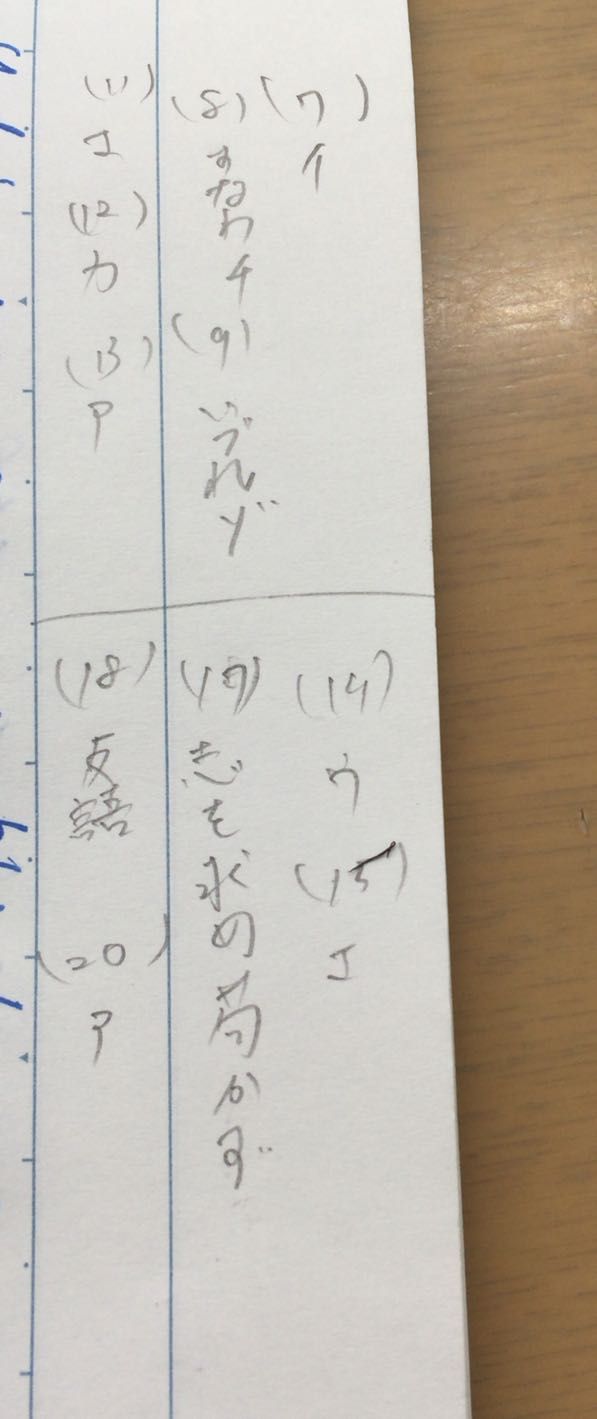 (7) イ
(8) すなわチ (9) いづれゾ
(11) エ (12) カ (13) ア
(14) ウ (15) エ
(17) を求め かず
(18) 反語 (20) ア